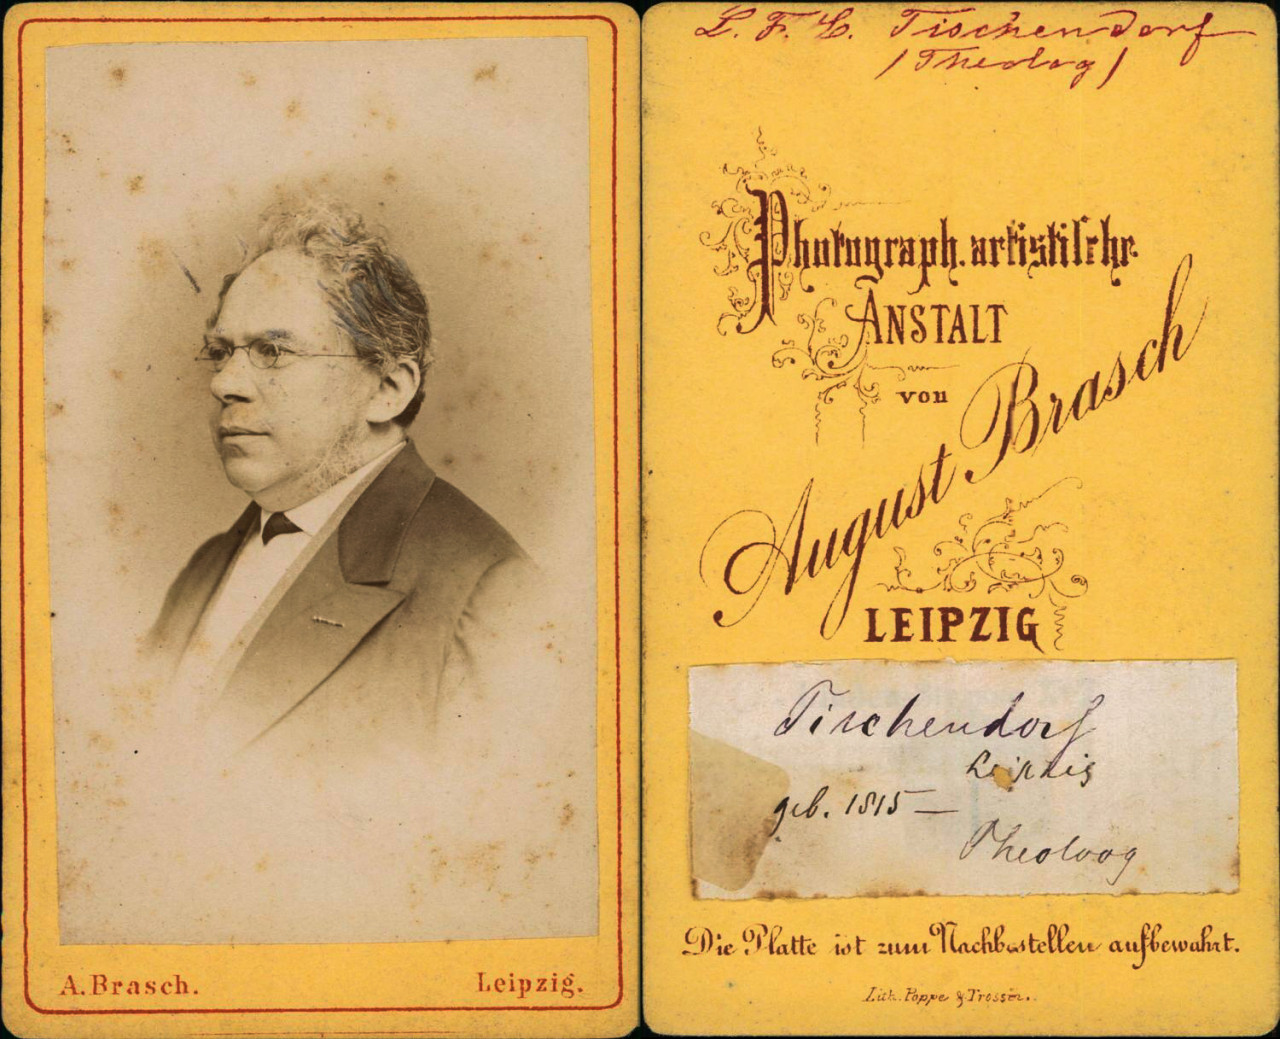 A. Brasch.
Leipzig.
L. F. C. Tischendorf
(Theolog)
Photograph. artistische
ANSTALT
von
August Brasch
LEIPZIG
Tischendorf
Leipzig
geb. 1815 —
Theoloog
Die Platte ist zum Nachbestellen aufbewahrt.
Lith. Poppe & Trosser.